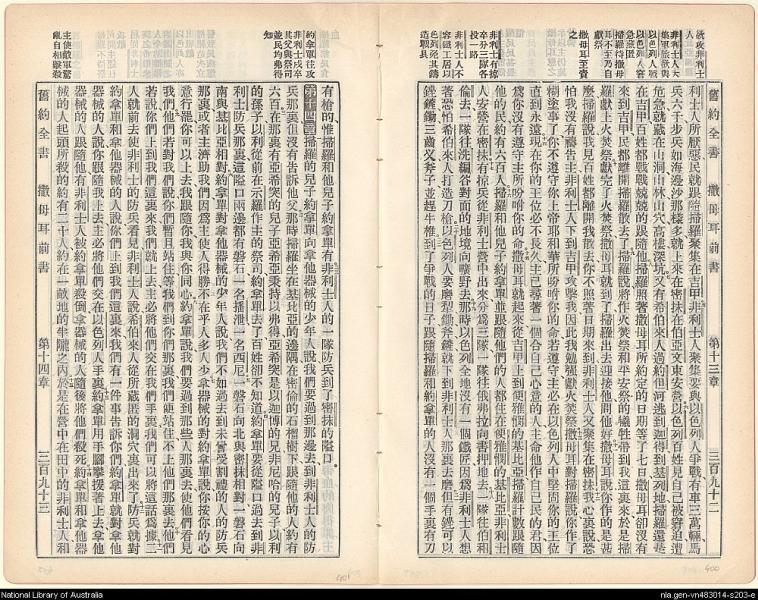 舊約全書 撒母耳前書 第十三章 三百九十二
利士人所厭惡民就跟隨掃羅聚集在吉甲非利士人聚集要與以色列人爭戰有車三萬輛馬
兵六千步兵如海邊沙那樣多就上來在密抹在伯亞文東安營以色列百姓見自己被窘迫遭
危急就藏在山洞山林山穴高樓深坑又有希伯來人過約但河逃到迦得到基列地掃羅還是
在吉甲百姓都戰戰兢兢的跟隨他掃羅照著撒母耳所約定的日期等了七日撒母耳卻沒有
來到吉甲民都離開掃羅散去了掃羅說將作火焚祭和平安祭的犧牲帶到我這裏來於是掃
羅獻上火焚祭獻完了火焚祭撒母耳就到了掃羅出去迎接他問他好撒母耳說你作的是甚
麼掃羅說我見百姓都離開我散去你不照著日期來到非利士人又聚集在密抹我心裏說恐
怕我沒有禱告主非利士人下到吉甲攻擊我因此我勉強獻火焚祭撒母耳對掃羅說你作了
糊塗事了你不遵守你上帝耶和華所吩咐你的命若遵守主必在以色列人中堅固你的王位
直到永遠現在你的王位必不長久主已尋著一個合自己心意的人主命他作自己民的君因
為你沒有遵守主所吩咐你的命撒母耳就起來從吉甲上到便雅憫的基比亞掃羅計數跟隨
他的民約有六百人掃羅和他兒子約拿單並跟隨他們的人都住在便雅憫的基比亞非利士
人安營在密抹有掠兵從非利士營中出來分為三隊一隊往俄弗拉向書押地去一隊往伯和
倫去一隊往洗編谷對面的地境向曠野去那時以色列全地沒有一個鐵匠因為非利士人想
著恐怕希伯來人打造刀槍以色列人要磨犁鋤斧鏟就下到非利士人那裏去磨但有銼可以
銼鏟鋤三齒叉斧子並趕牛椎到了爭戰的日子跟隨掃羅和約拿單的人沒有一個手裏有刀
舊約全書 撒母耳前書 第十四章 三百九十三
有槍的惟掃羅和他兒子約拿單有非利士人的一隊防兵到了密抹的隘口
第十四章 掃羅的兒子約拿單向拿他器械的少年人說我們要過到那邊去到非利士人的防
兵那裏但沒有告訴他父那時掃羅坐在基比亞的邊隅在密倫的石榴樹下跟隨他的人約有
六百在那裏有亞希突的兒子亞希亞秉持以弗得亞希突是以迦博的兄非尼哈的兒子以利
的孫子以利從前在示羅作主的祭司約拿單去了百姓卻不知道約拿單要從隘口過去到非
利士防兵那裏這隘口兩邊都有磐石一名播泄一名西尼一磐石向北與密抹相對一磐石向
南與基比亞相對約拿單對拿他器械的少年人說我們不如過去到未嘗受割禮的人的防兵
那裏或者主濟助我們因為主使人得勝不在乎人多人少拿器械的對約拿單說你按你的心
意行罷你可以上去我跟隨你我與你同心約拿單說我們要過到那些人那裏去使他們看見
我們他們若對我們說你們暫且站住等我們到你們那裏我們便站住不上他們那裏去他們
若說你們上到我們這裏來我們就上去主必將他們交在我們手裏我們可以將這話為據二
人就前去使非利士的防兵看見非利士人說希伯來人從所藏匿的洞穴裏出來了防兵就對
約拿單和拿他器械的人說你們上到我們這裏來我們有一件事告訴你們約拿單就對拿他
器械的人說你跟隨我上去主必將他們交在以色列人手裏約拿單用手腳攀援著上去拿他
器械的人跟隨他有非利士人被約拿單殺倒拿器械的人隨後將他們殺死約拿單和拿他器
械的人起頭所殺的約有二十人約在一畝地的半隴之內於是在營中在田中的非利士人和
National Library of Australia
nla.gen-vn483014-s203-e